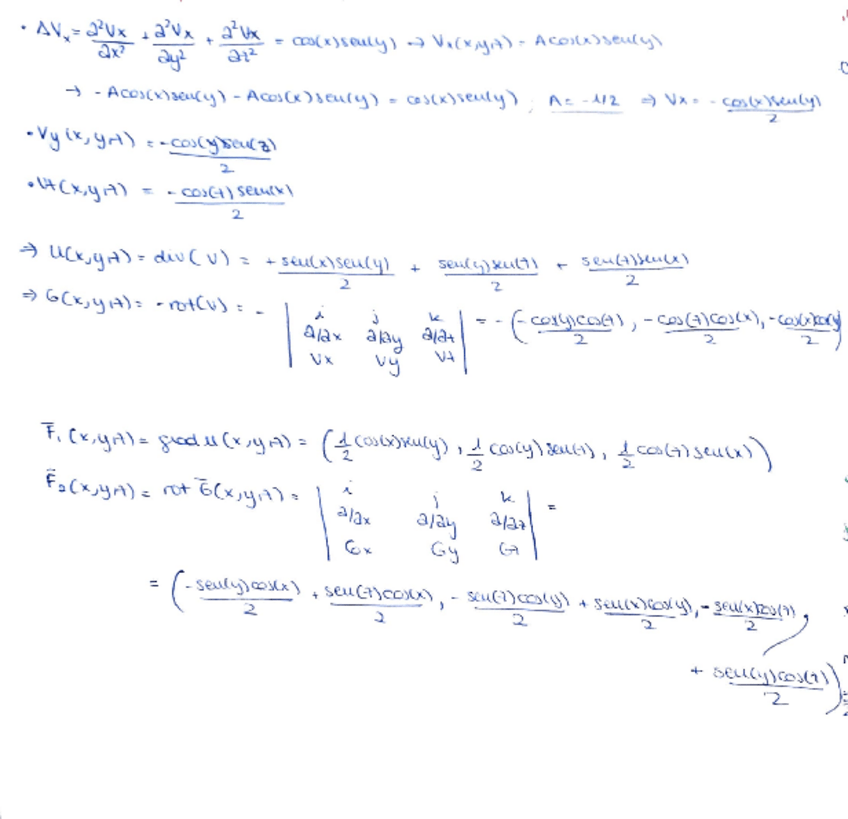 · ΔVx = ∂²Vx/∂x² + ∂²Vx/∂y² + ∂²Vx/∂z² = cos(x)sen(y) → Vx(x,y,z) = Acos(x)sen(y)
→ -Acos(x)sen(y) - Acos(x)sen(y) = cos(x)sen(y); A = -1/2 ⇒ Vx = -cos(x)sen(y)/2
· Vy(x,y,z) = -cos(y)sen(z)/2
· Vz(x,y,z) = -cos(z)sen(x)/2
⇒ U(x,y,z) = div(V) = + sen(x)sen(y)/2 + sen(y)sen(z)/2 + sen(z)sen(x)/2
⇒ G(x,y,z) = -rot(V) = - | i j k ; ∂/∂x ∂/∂y ∂/∂z ; Vx Vy Vz | = - (-cos(y)cos(z)/2, -cos(z)cos(x)/2, -cos(x)cos(y)/2)
F̄₁(x,y,z) = grad U(x,y,z) = (1/2 cos(x)sen(y), 1/2 cos(y)sen(z), 1/2 cos(z)sen(x))
F̄₂(x,y,z) = rot Ḡ(x,y,z) = | i j k ; ∂/∂x ∂/∂y ∂/∂z ; Gx Gy Gz | =
= (-sen(y)cos(x)/2 + sen(z)cos(x)/2, -sen(z)cos(y)/2 + sen(x)cos(y)/2, -sen(x)cos(z)/2
+ sen(y)cos(z)/2)